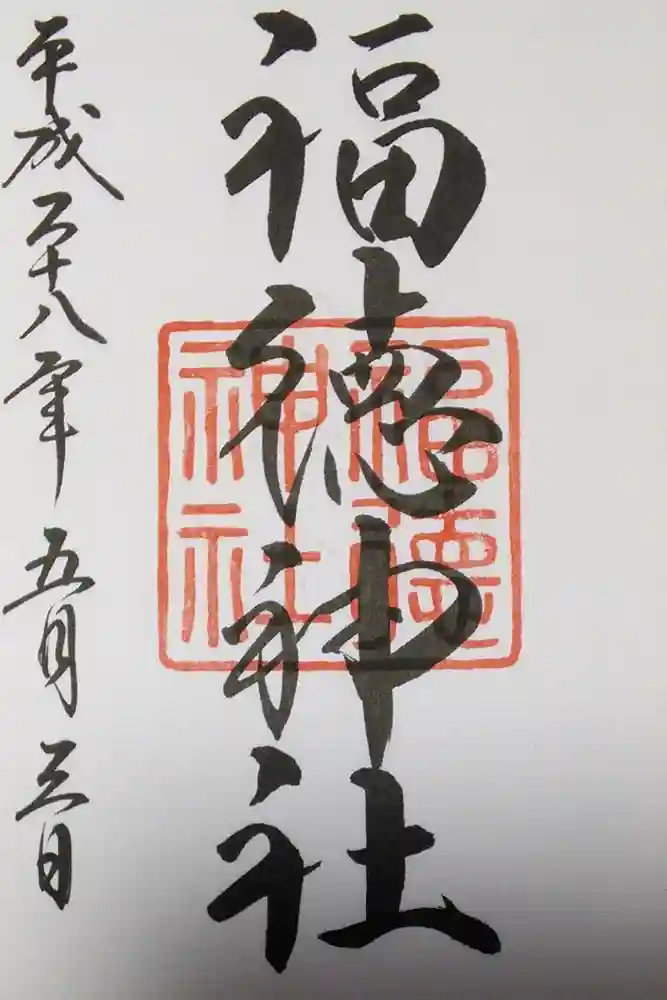 福徳神社
福徳
神社
平成二十八年五月三日